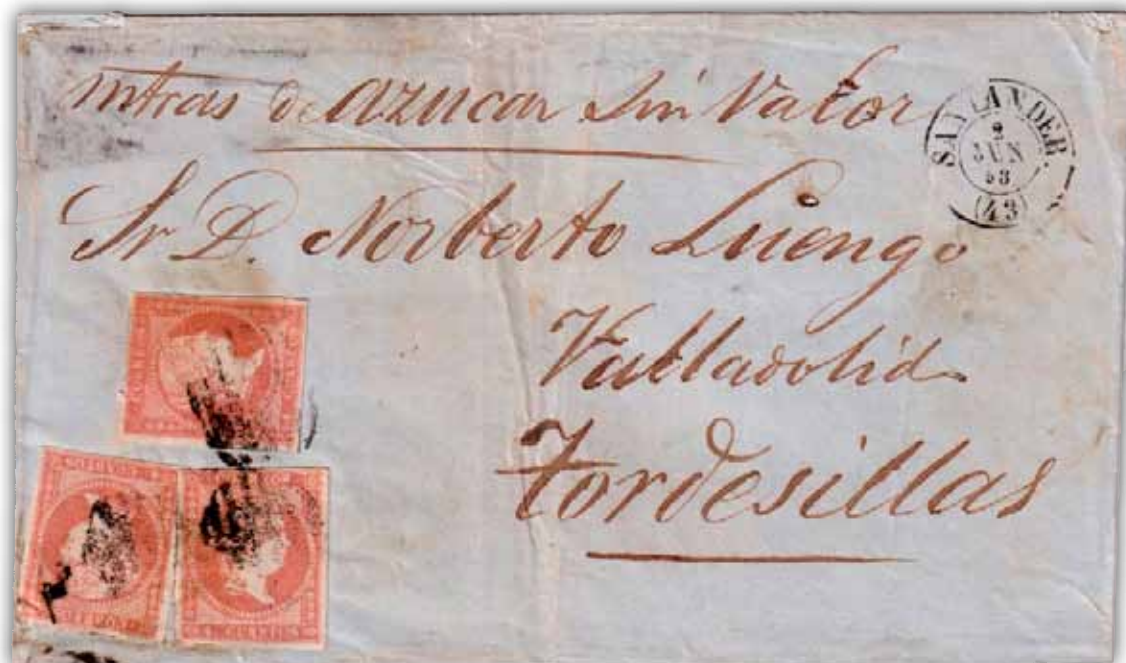 mtras de azucar sin Valor
SANTANDER.
2
JUN
58
(43)
Sr D. Norberto Luengo
Valladolid
Tordesillas
CUARTOS